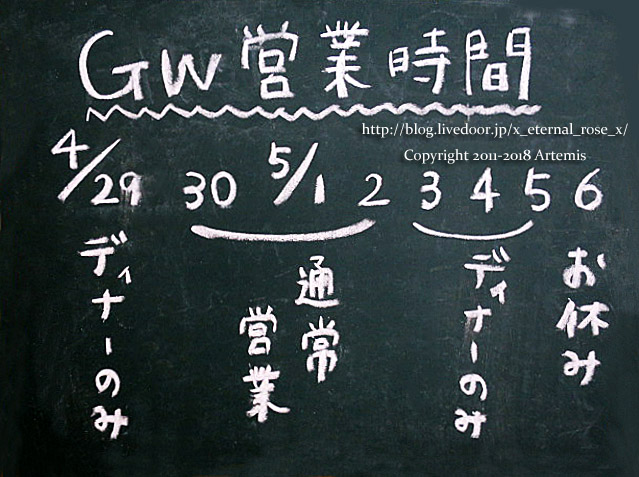 GW営業時間
http://blog.livedoor.jp/x_eternal_rose_x/
Copyright 2011-2018 Artemis
4/29 30 5/1 2 3 4 5 6
ディナーのみ
通常
営業
ディナーのみ
お休み